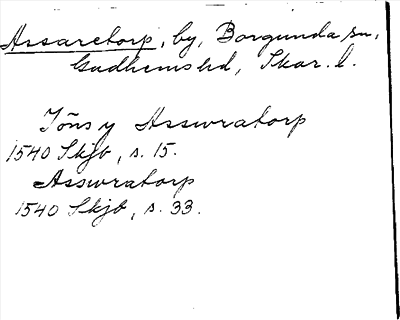 Assaretorp, by, Borgunda sn,
Gudhems hd, Skar. l.
Jöns y Asswratorp
1540 Skjb, s. 15.
Asswratorp
1540 Skjb, s. 33.